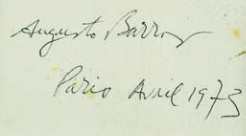 Augusto Barros
Paris Avril 1973